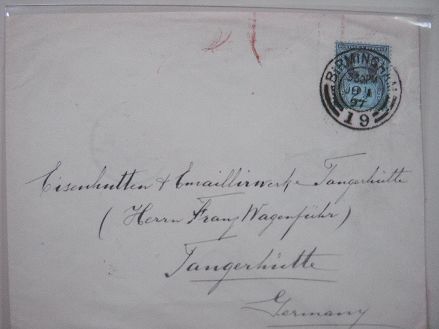 BIRMINGHAM
97
19
Eisenhütten & Emaillirwerke Tangerhütte
(Herrn Franz Wagenführ)
Tangerhütte
Germany